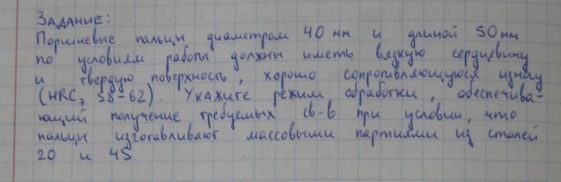 Задание:
Поршневые пальцы диаметром 40 мм и длиной 50 мм
по условиям работы должны иметь вязкую сердцевину
и твердую поверхность, хорошо сопротивляющуюся износу
(HRCэ 58-62). Укажите режим обработки, обеспечива-
ющий получение требуемых св-в при условии, что
пальцы изготавливают массовыми партиями из сталей
20 и 45